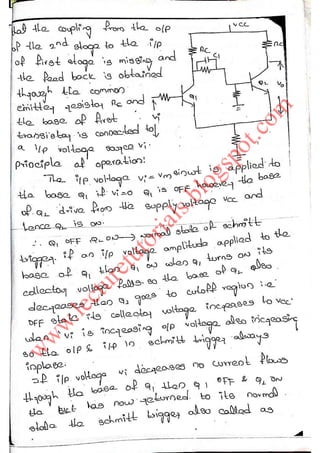 that the coupling from the o/p
of the 2nd stage to the i/p
of first stage is missing and
the feed back is obtained
through the common
emitter resistor Re and
the base of first
transistor is connected to
a i/p voltage source vi.
VCC
RC
C1
RC
Q1
Q2
Vo
vi
Principle of operation:
The i/p voltage vi = vm sinωt is applied to
the base Q1 if vi=0 Q1 is OFF however the base
of Q2 drive from the supply voltage Vcc and
hence Q2 is on.
∴ Q1 OFF Q2 ON → normal state of schmitt
trigger. if an i/p voltage amplitude applied to the
base of Q1 then Q1 ON when Q1 turns on its
collector voltage falls. so the base of Q2 also
decreases then Q2 goes to cutoff region i.e
OFF state its collector voltage increases to Vcc.
when vi is increasing o/p voltage also increasing
so the o/p & i/p in schmitt trigger always
inphase.
If i/p voltage vi decreases no current flows
through the base of Q1 then Q1 OFF & Q2 ON
the BKT has now returned to its normal
state the schmitt trigger also called as
www.eeecubetutorials.blogspot.com